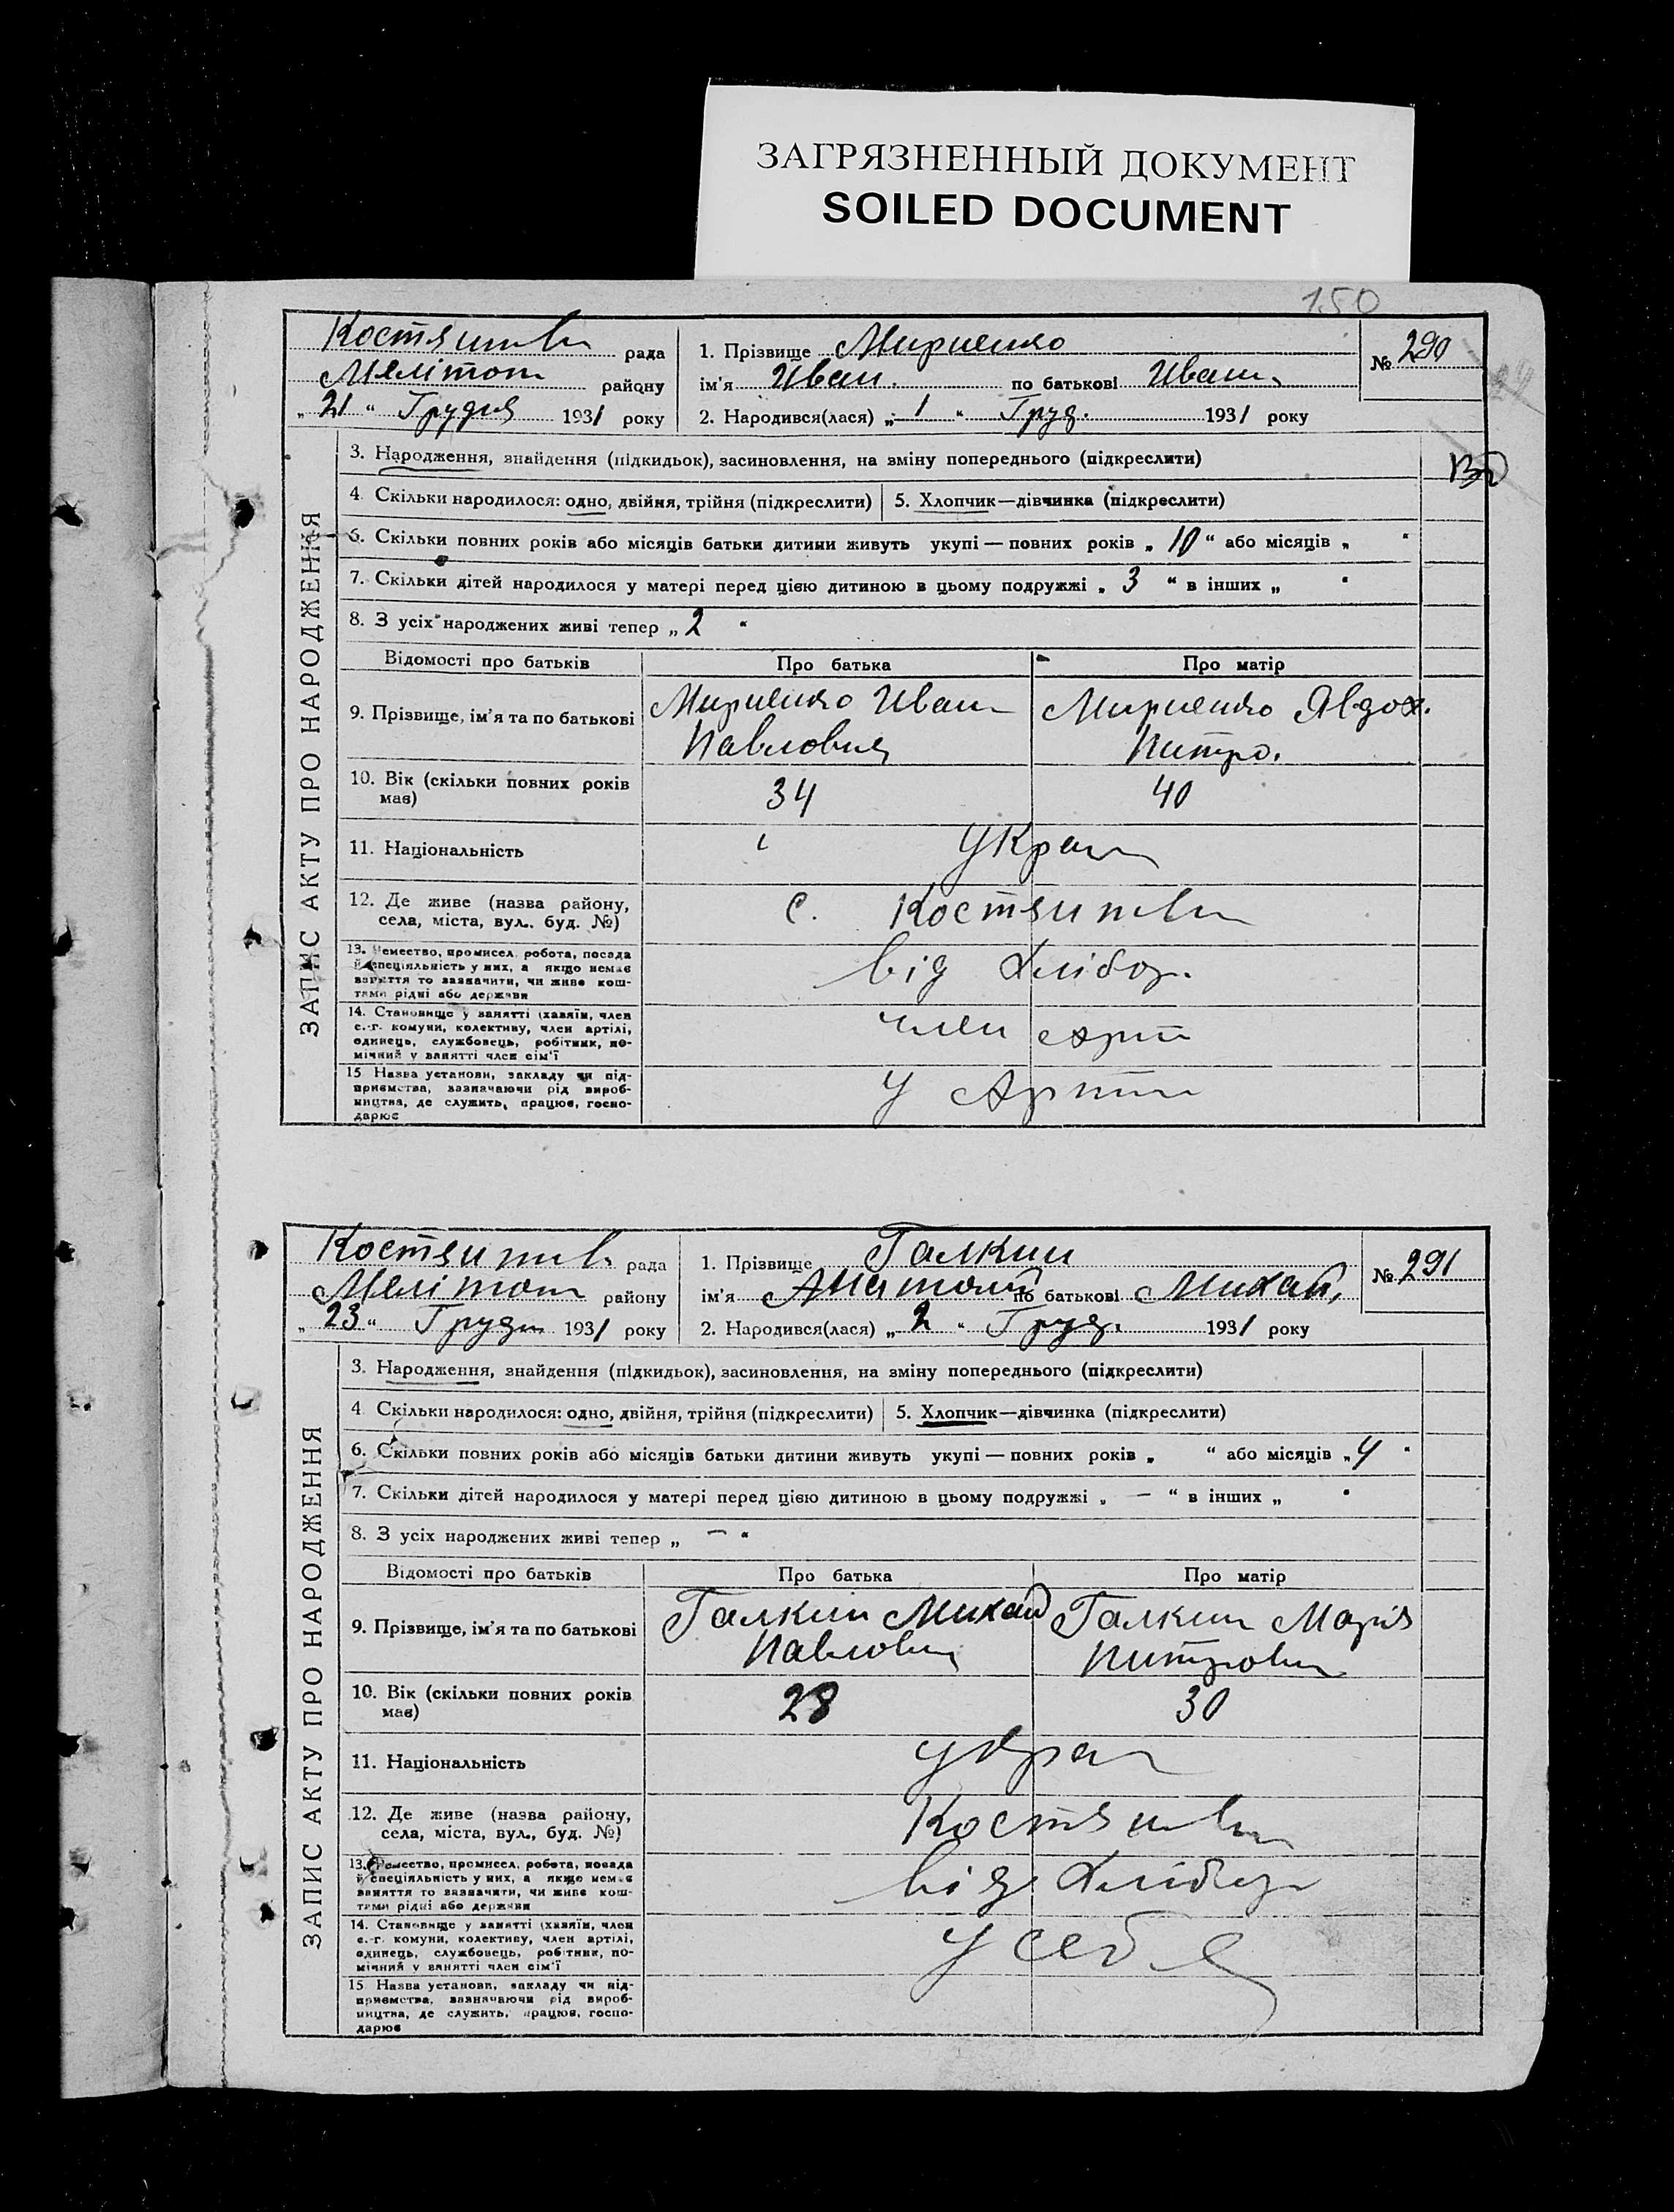 ЗАГРЯЗНЕННЫЙ ДОКУМЕНТ
SOILED DOCUMENT
150
ЗАПИС АКТУ ПРО НАРОДЖЕННЯ
рада
Мелітоп району
„ 21 “ Грудня 1931 року
1. Прізвище Мириенко
ім'я Иван. по батькові Иван.
2. Народився(лася) „ 1 “ Груд. 1931 року
№ 290
3. Народження, знайдення (підкидьок), засиновлення, на зміну попереднього (підкреслити)
4. Скільки народилося: одно, двійня, трійня (підкреслити) 5. Хлопчик—дівчинка (підкреслити)
6. Скільки повних років або місяців батьки дитини живуть укупі — повних років „ 10 “ або місяців „ “
7. Скільки дітей народилося у матері перед цією дитиною в цьому подружжі „ 3 “ в інших „ “
8. З усіх народжених живі тепер „ 2 “
Відомості про батьків Про батька Про матір
9. Прізвище, ім'я та по батькові Мириенко Иван Мириенко Явдох.
Павлович Питро.
10. Вік (скільки повних років має) 34 40
11. Національність Украп
12. Де живе (назва району,
села, міста, вул., буд. №) с.
13. Ремество, промисел, робота, посада
й спеціяльність у них, а якщо немає
заняття то зазначити, чи живе кош-
тами рідні або держави
від Хлібор.
14. Становище у занятті (хазяїн, член
с.-г. комуни, колективу, член артілі,
одинець, службовець, робітник, по-
мічний у занятті член сім'ї
член арт
15 Назва установи, закладу чи під-
приємства, зазначаючи рід вироб-
ництва, де служить, працює, госпо-
дарює
у Арт
ЗАПИС АКТУ ПРО НАРОДЖЕННЯ
рада
Мелітоп району
„ 23 “ Груд 1931 року
1. Прізвище Галкин
ім'я Анатолій по батькові Михай.
2. Народився(лася) „ 2 “ Груд. 1931 року
№ 291
3. Народження, знайдення (підкидьок), засиновлення, на зміну попереднього (підкреслити)
4. Скільки народилося: одно, двійня, трійня (підкреслити) 5. Хлопчик—дівчинка (підкреслити)
6. Скільки повних років або місяців батьки дитини живуть укупі — повних років „ “ або місяців „ 4 “
7. Скільки дітей народилося у матері перед цією дитиною в цьому подружжі „ — “ в інших „ “
8. З усіх народжених живі тепер „ — “
Відомості про батьків Про батька Про матір
9. Прізвище, ім'я та по батькові Галкин Михай Галкин Марія
Павлович Питровн
10. Вік (скільки повних років має) 28 30
11. Національність украп
12. Де живе (назва району,
села, міста, вул., буд. №)
13. Ремество, промисел, робота, посада
й спеціяльність у них, а якщо немає
заняття то зазначити, чи живе кош-
тами рідні або держави
від Хлібор
14. Становище у занятті (хазяїн, член
с.-г. комуни, колективу, член артілі,
одинець, службовець, робітник, по-
мічний у занятті член сім'ї
у себе
15. Назва установи, закладу чи під-
приємства, зазначаючи рід вироб-
ництва, де служить, працює, госпо-
дарює